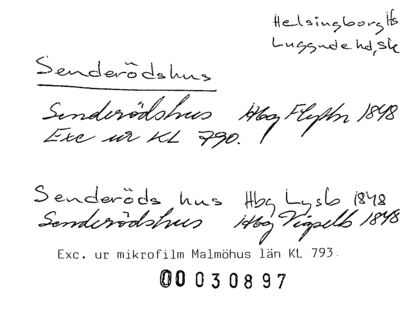 Helsingborg Hfs
Luggude hd, Sk
Senderödshus
Senderödshus Hbg Flyttn 1848
Exc ur KL 790.
Senderöds hus Hbg Lysb 1848
Senderödshus Hbg Vigselb 1848
Exc. ur mikrofilm Malmöhus län KL 793.
00030897